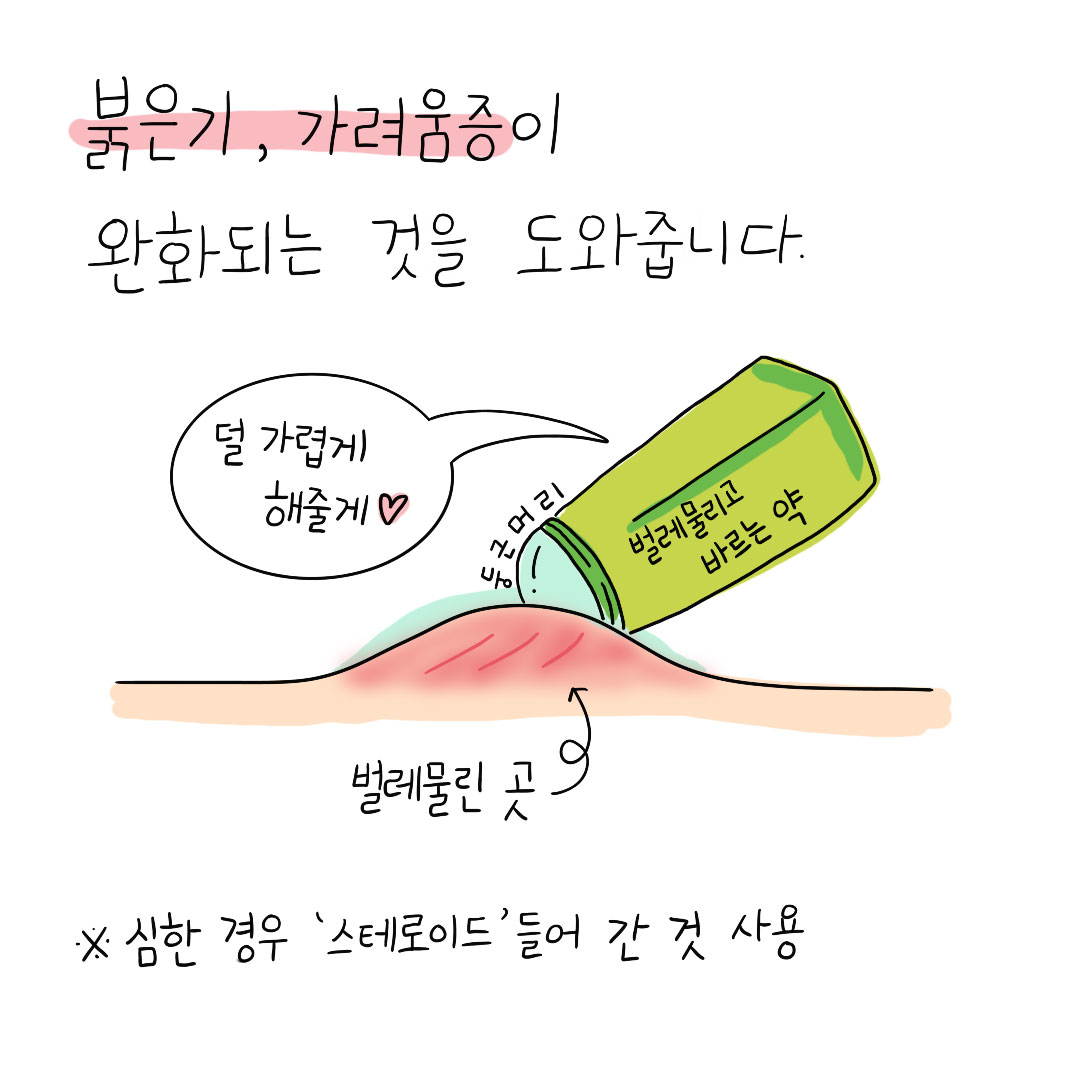 붉은기, 가려움증이
완화되는 것을 도와줍니다.
덜 가렵게
해줄게♡
둥근머리
벌레물리고
바르는 약
벌레물린 곳
※ 심한 경우 '스테로이드' 들어 간 것 사용